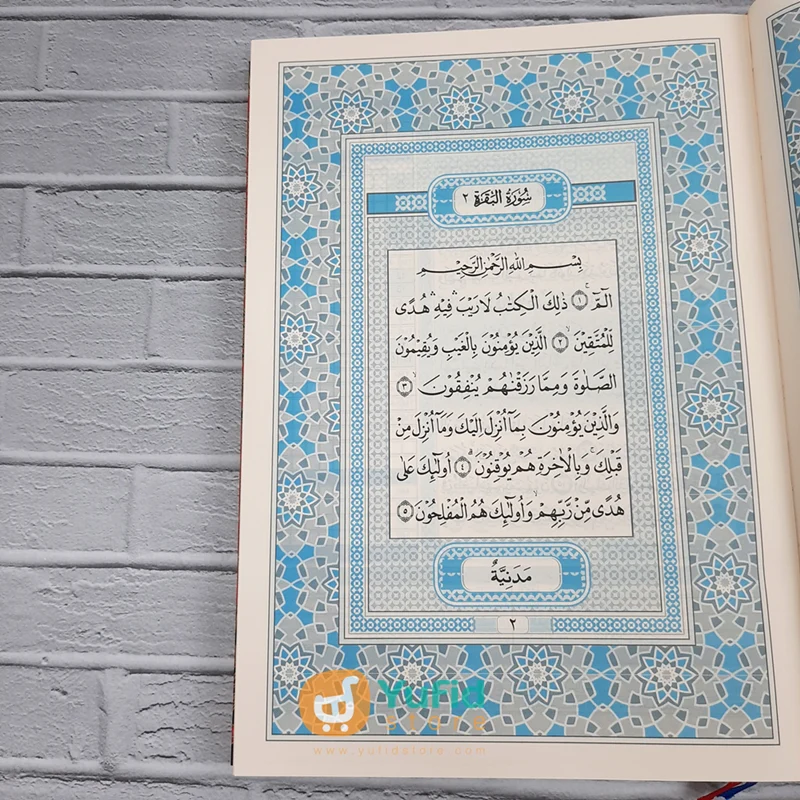 سُوْرَةُ الْبَقَرَةِ ٢
بِسْمِ اللّٰهِ الرَّحْمٰنِ الرَّحِيْمِ
الۤمّۤ ۚ ١ ذٰلِكَ الْكِتٰبُ لَا رَيْبَ ۛ فِيْهِ ۛ هُدًى
لِّلْمُتَّقِيْنَ ۙ ٢ الَّذِيْنَ يُؤْمِنُوْنَ بِالْغَيْبِ وَيُقِيْمُوْنَ
الصَّلٰوةَ وَمِمَّا رَزَقْنٰهُمْ يُنْفِقُوْنَ ۙ ٣
وَالَّذِيْنَ يُؤْمِنُوْنَ بِمَآ اُنْزِلَ اِلَيْكَ وَمَآ اُنْزِلَ مِنْ
قَبْلِكَ ۚ وَبِالْاٰخِرَةِ هُمْ يُوْقِنُوْنَ ۗ ٤ اُولٰۤىِٕكَ عَلٰى
هُدًى مِّنْ رَّبِّهِمْ ۙ وَاُولٰۤىِٕكَ هُمُ الْمُفْلِحُوْنَ ٥
مَدَنِيَّةٌ
٢
YuFid
STORE
www.yufidstore.com